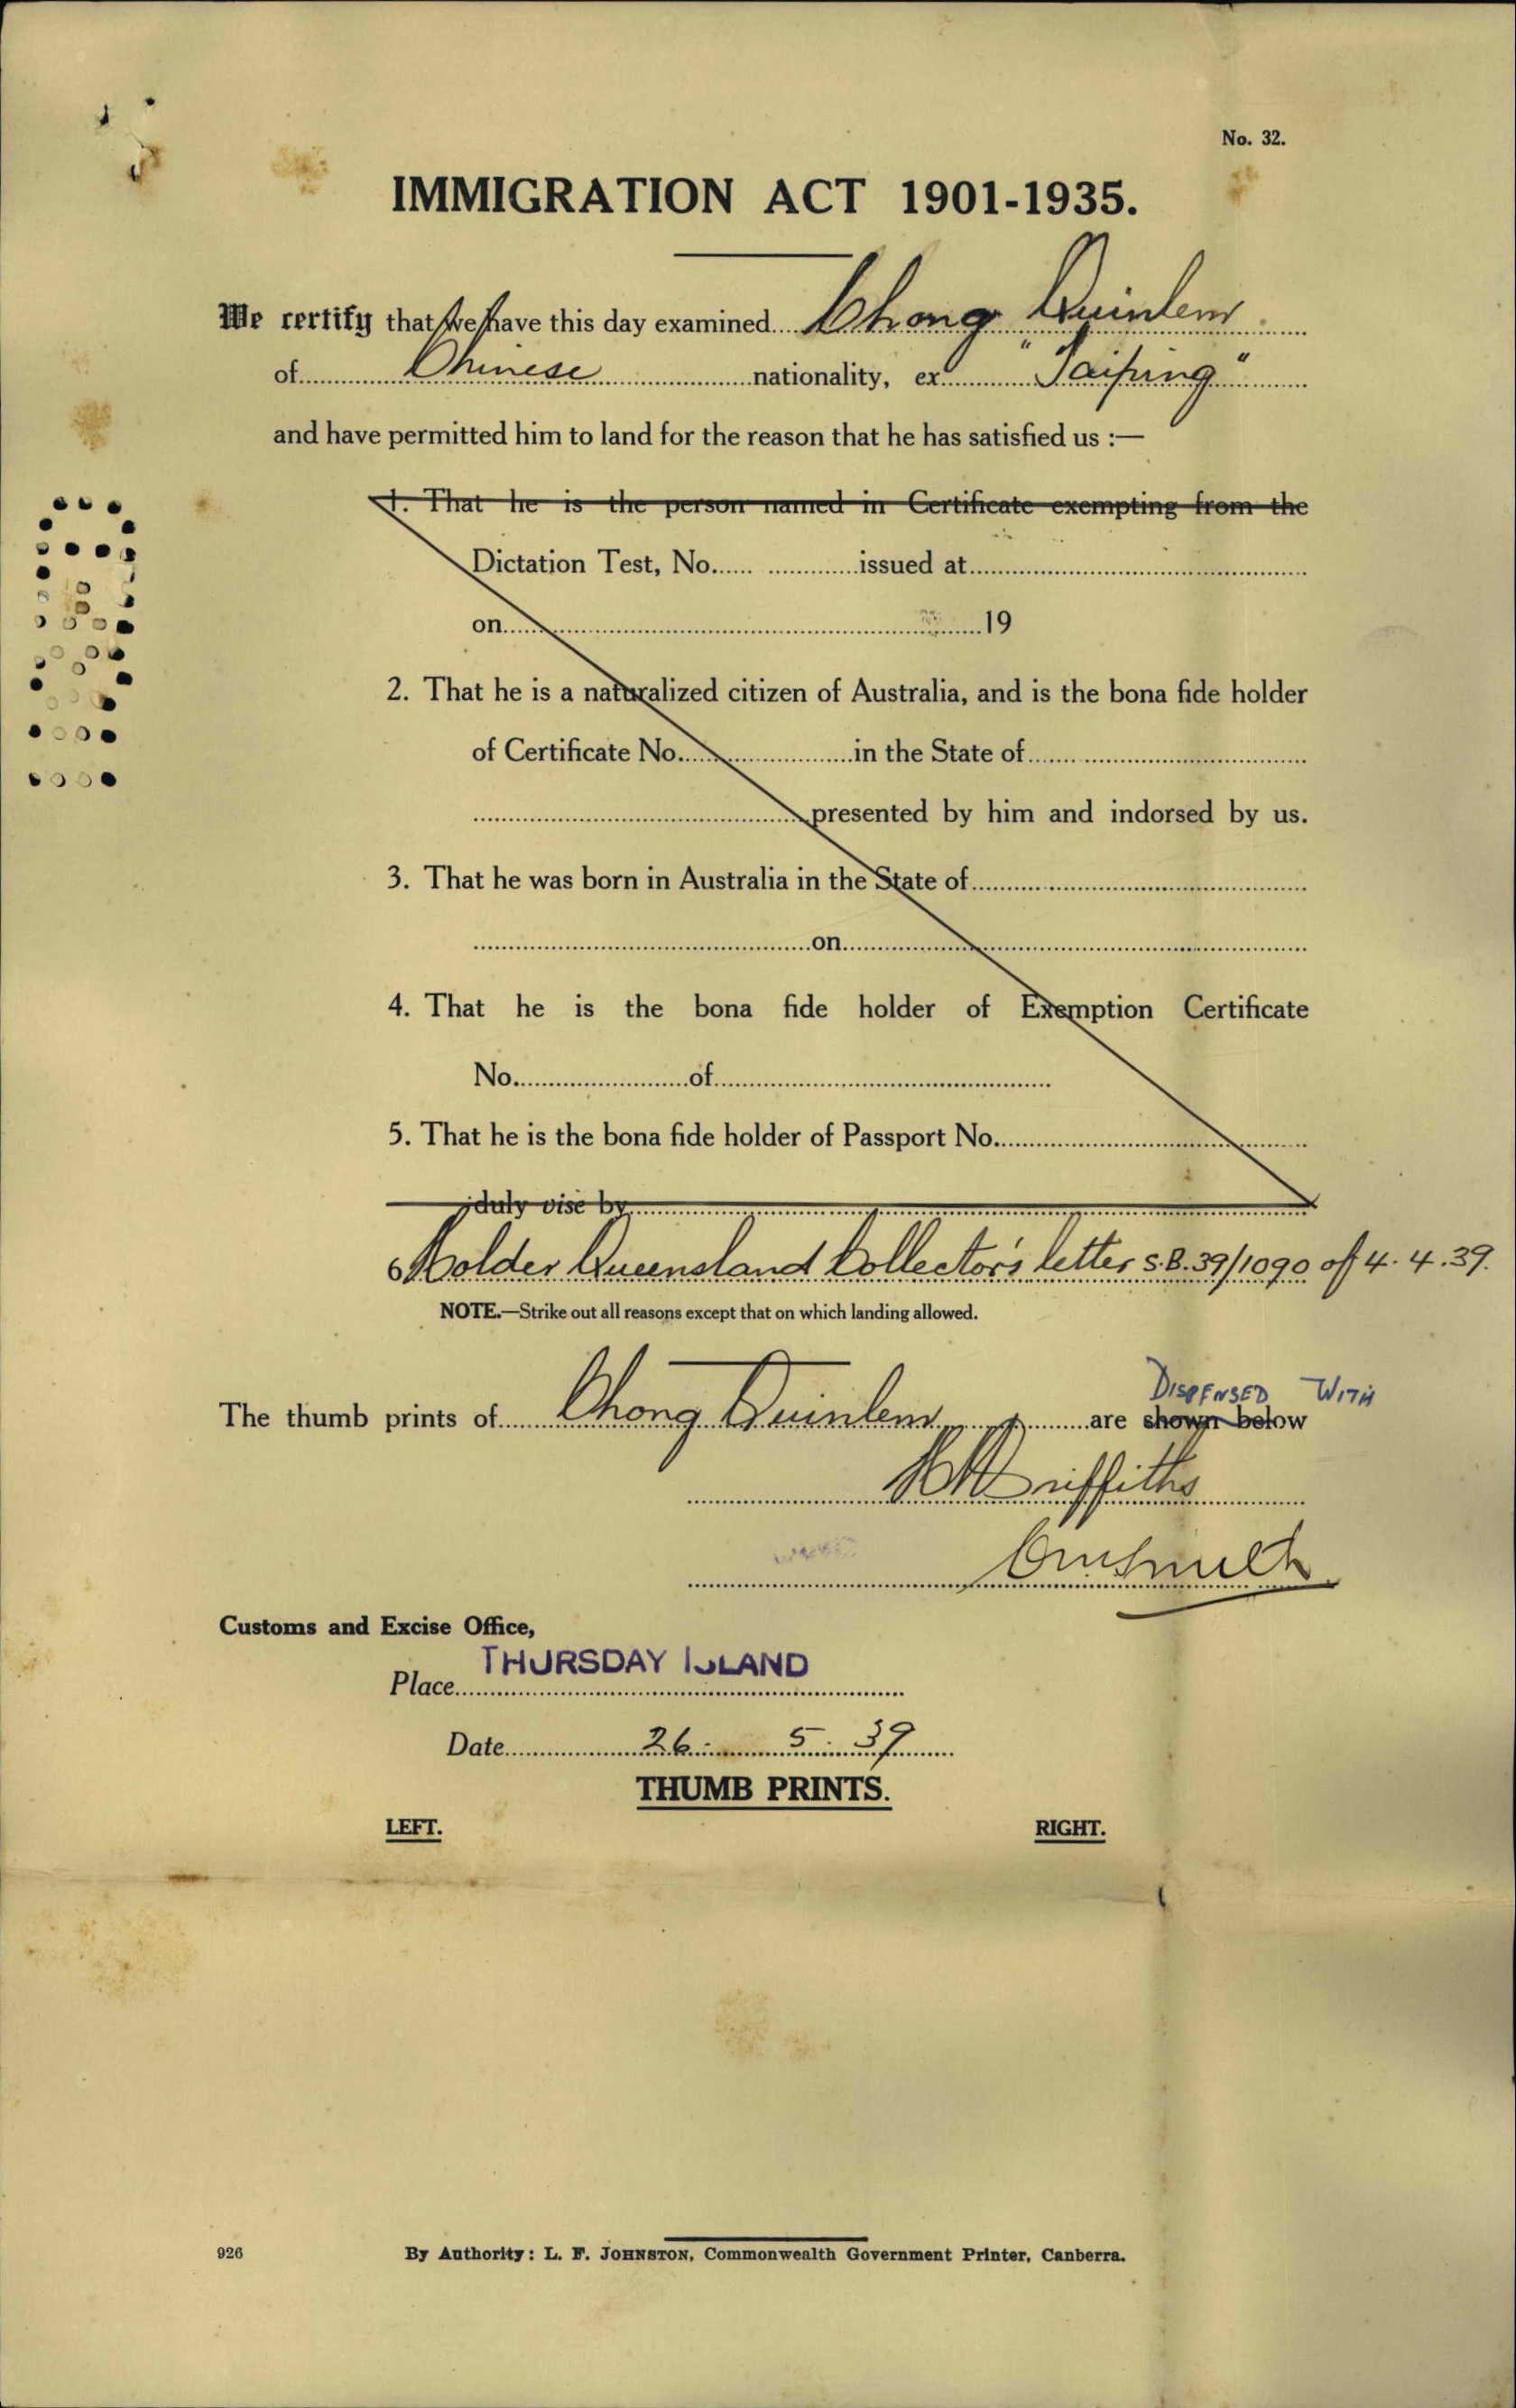 No. 32.
IMMIGRATION ACT 1901-1935.
We certify that we have this day examined Chong Quinlem
of Chinese nationality, ex "Taiping"
and have permitted him to land for the reason that he has satisfied us :—
1. That he is the person named in Certificate exempting from the
Dictation Test, No. issued at
on 19
2. That he is a naturalized citizen of Australia, and is the bona fide holder
of Certificate No. in the State of
presented by him and indorsed by us.
3. That he was born in Australia in the State of
on
4. That he is the bona fide holder of Exemption Certificate
No. of
5. That he is the bona fide holder of Passport No.
duly visé by
6 Holder Queensland Collector's letter S.B. 39/1090 of 4. 4. 39.
NOTE.—Strike out all reasons except that on which landing allowed.
DISPENSED WITH
The thumb prints of Chong Quinlem are shown below
Griffiths
Smith
Customs and Excise Office,
Place THURSDAY ISLAND
Date 26. 5. 39
THUMB PRINTS.
LEFT. RIGHT.
926 By Authority: L. F. JOHNSTON, Commonwealth Government Printer, Canberra.